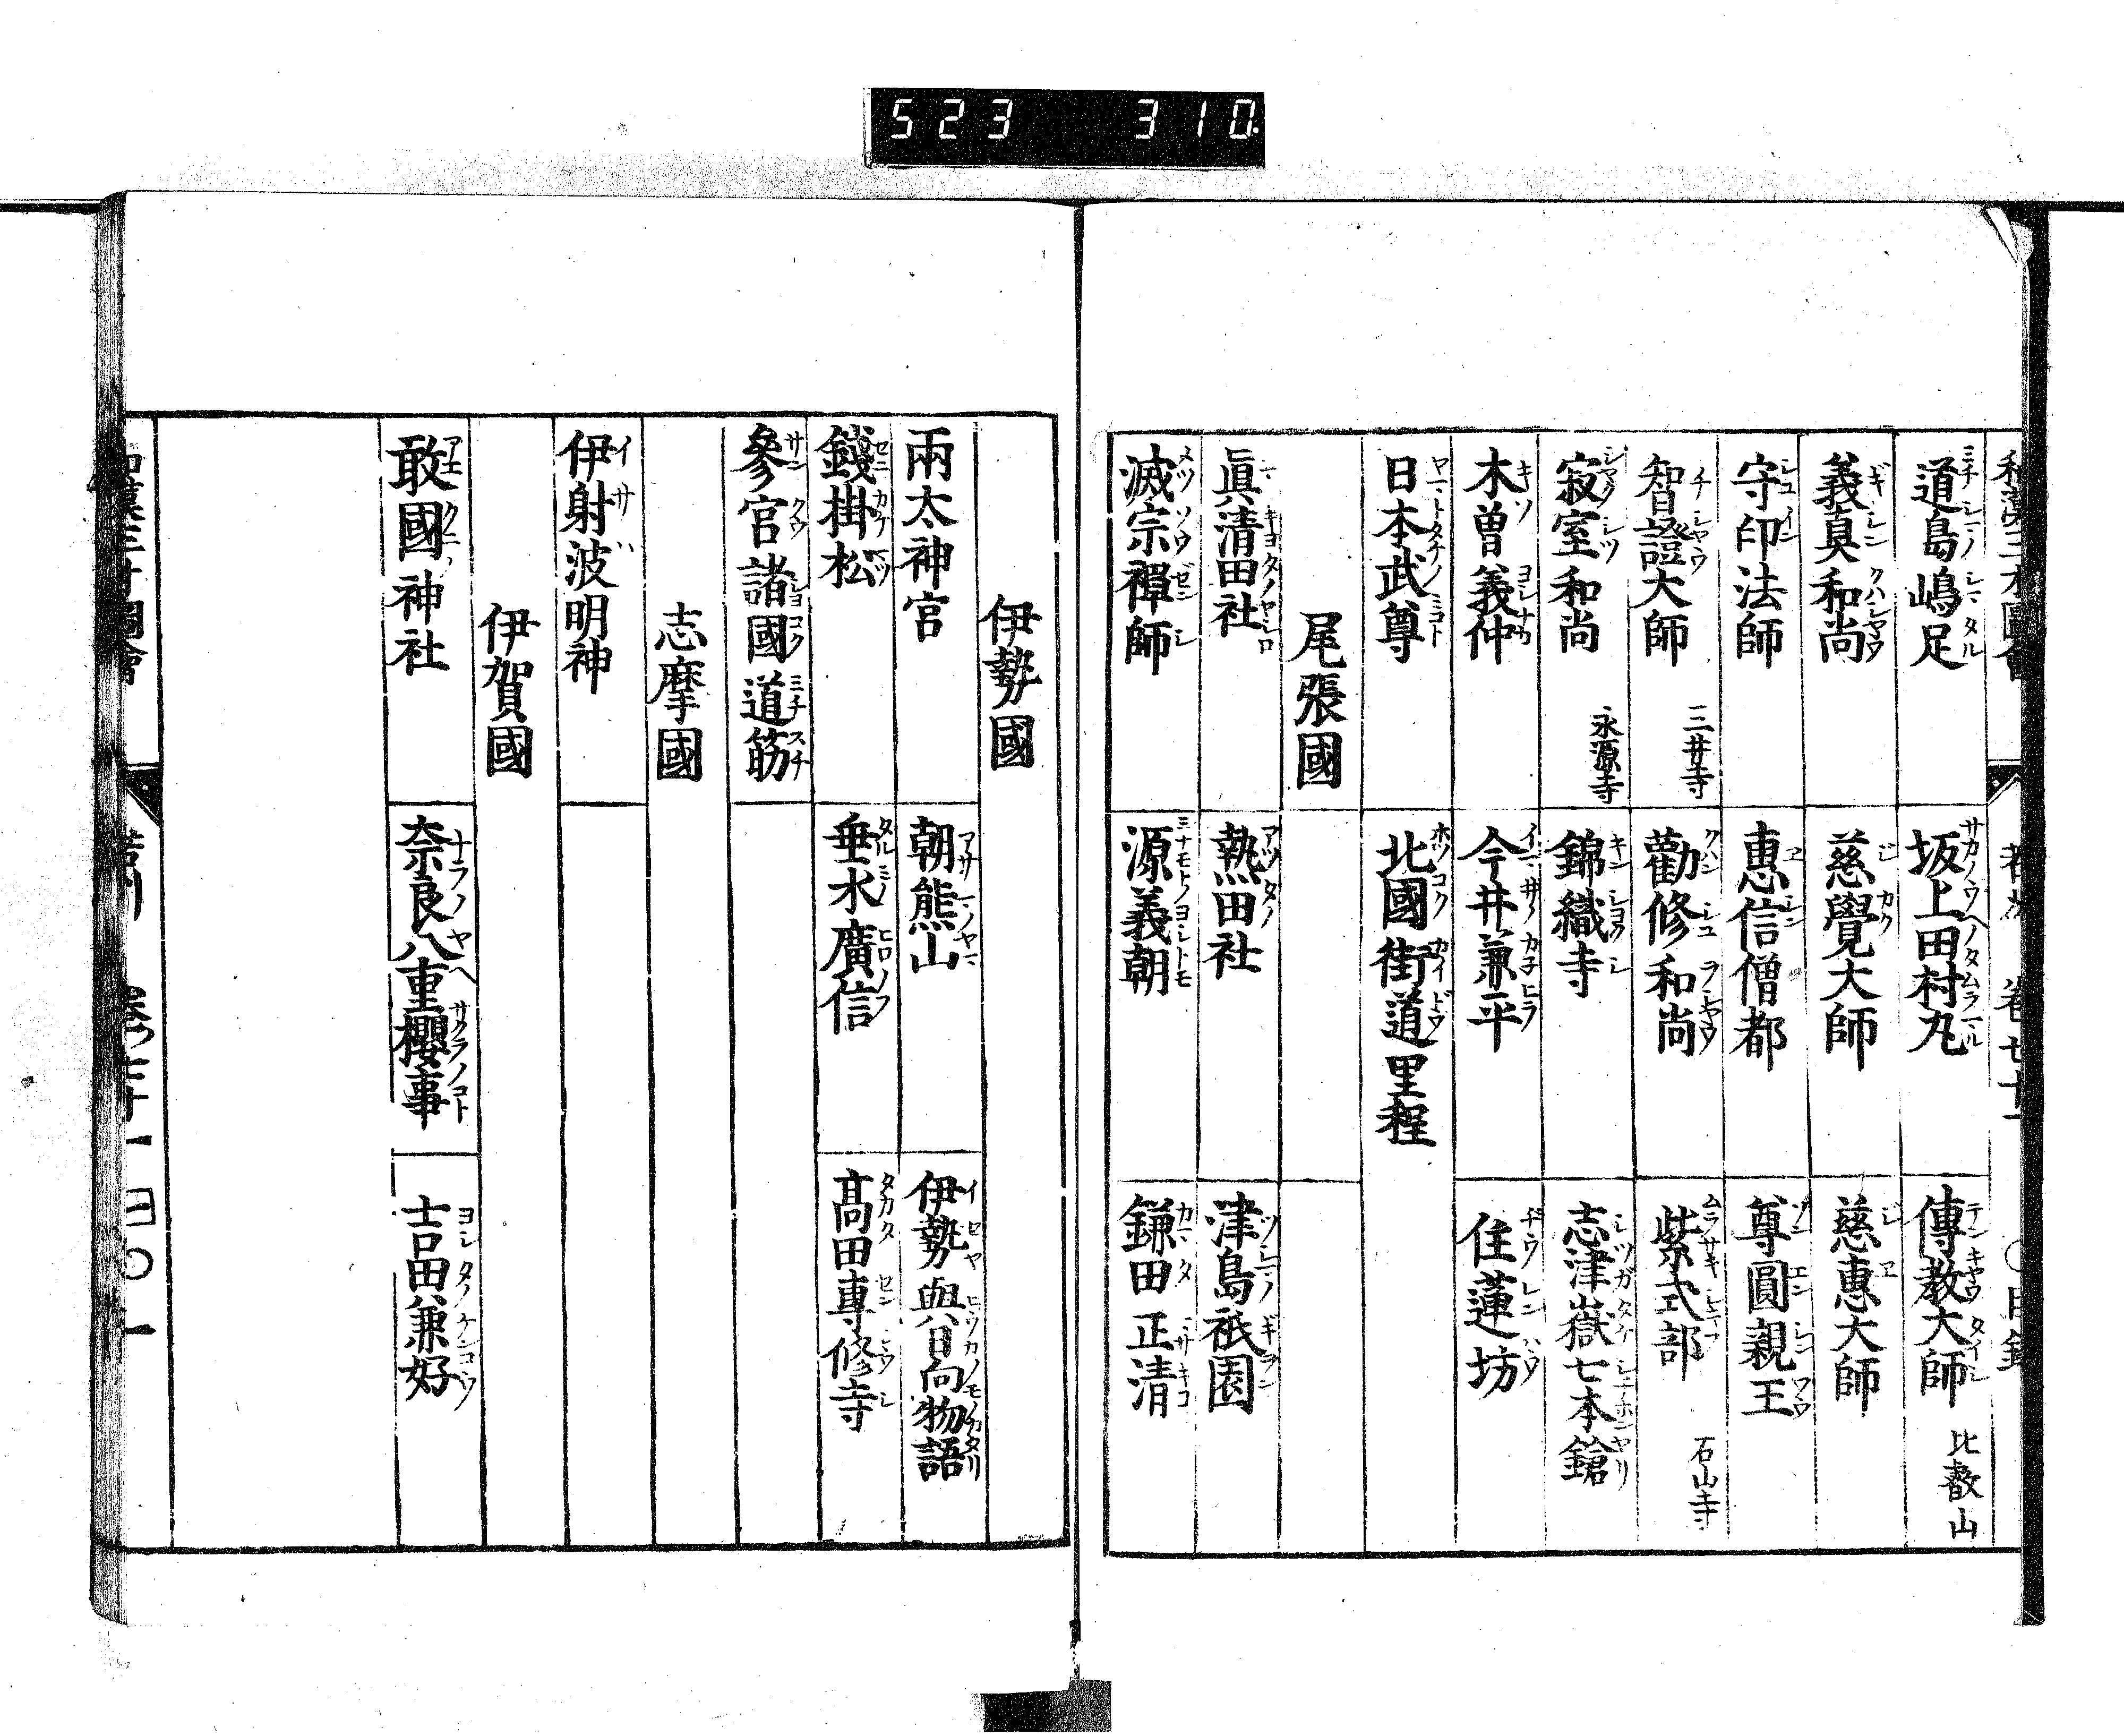 523 310
道島嶋足 坂上田村丸 傳教大師 比叡山
義真和尚 慈覺大師 慈惠大師
守印法師 惠信僧都 尊圓親王
智證大師 三井寺 勸修和尚 紫式部 石山寺
寂室和尚 永源寺 錦織寺 志津嶽七本鎗
木曽義仲 今井兼平 住蓮坊
日本武尊 北國街道里程
尾張國
眞清田社 熱田社 津島祇園
滅宗禪師 源義朝 鎌田正清
伊勢國
兩太神宮 朝熊山 伊勢與日向物語
錢掛松 垂水廣信 髙田專修寺
參宮諸國道筋
志摩國
伊射波明神
伊賀國
敢國神社 奈良八重櫻事 吉田兼好